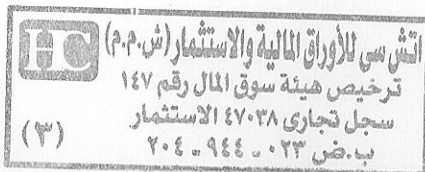 اتش سي للأوراق المالية والاستثمار (ش.م.م) HC
ترخيص هيئة سوق المال رقم ١٤٧
سجل تجارى ٤٧٠٣٨ الاستثمار
ب.ض ٠٢٣ ـ ٩٤٤ ـ ٢٠٤ (٣)